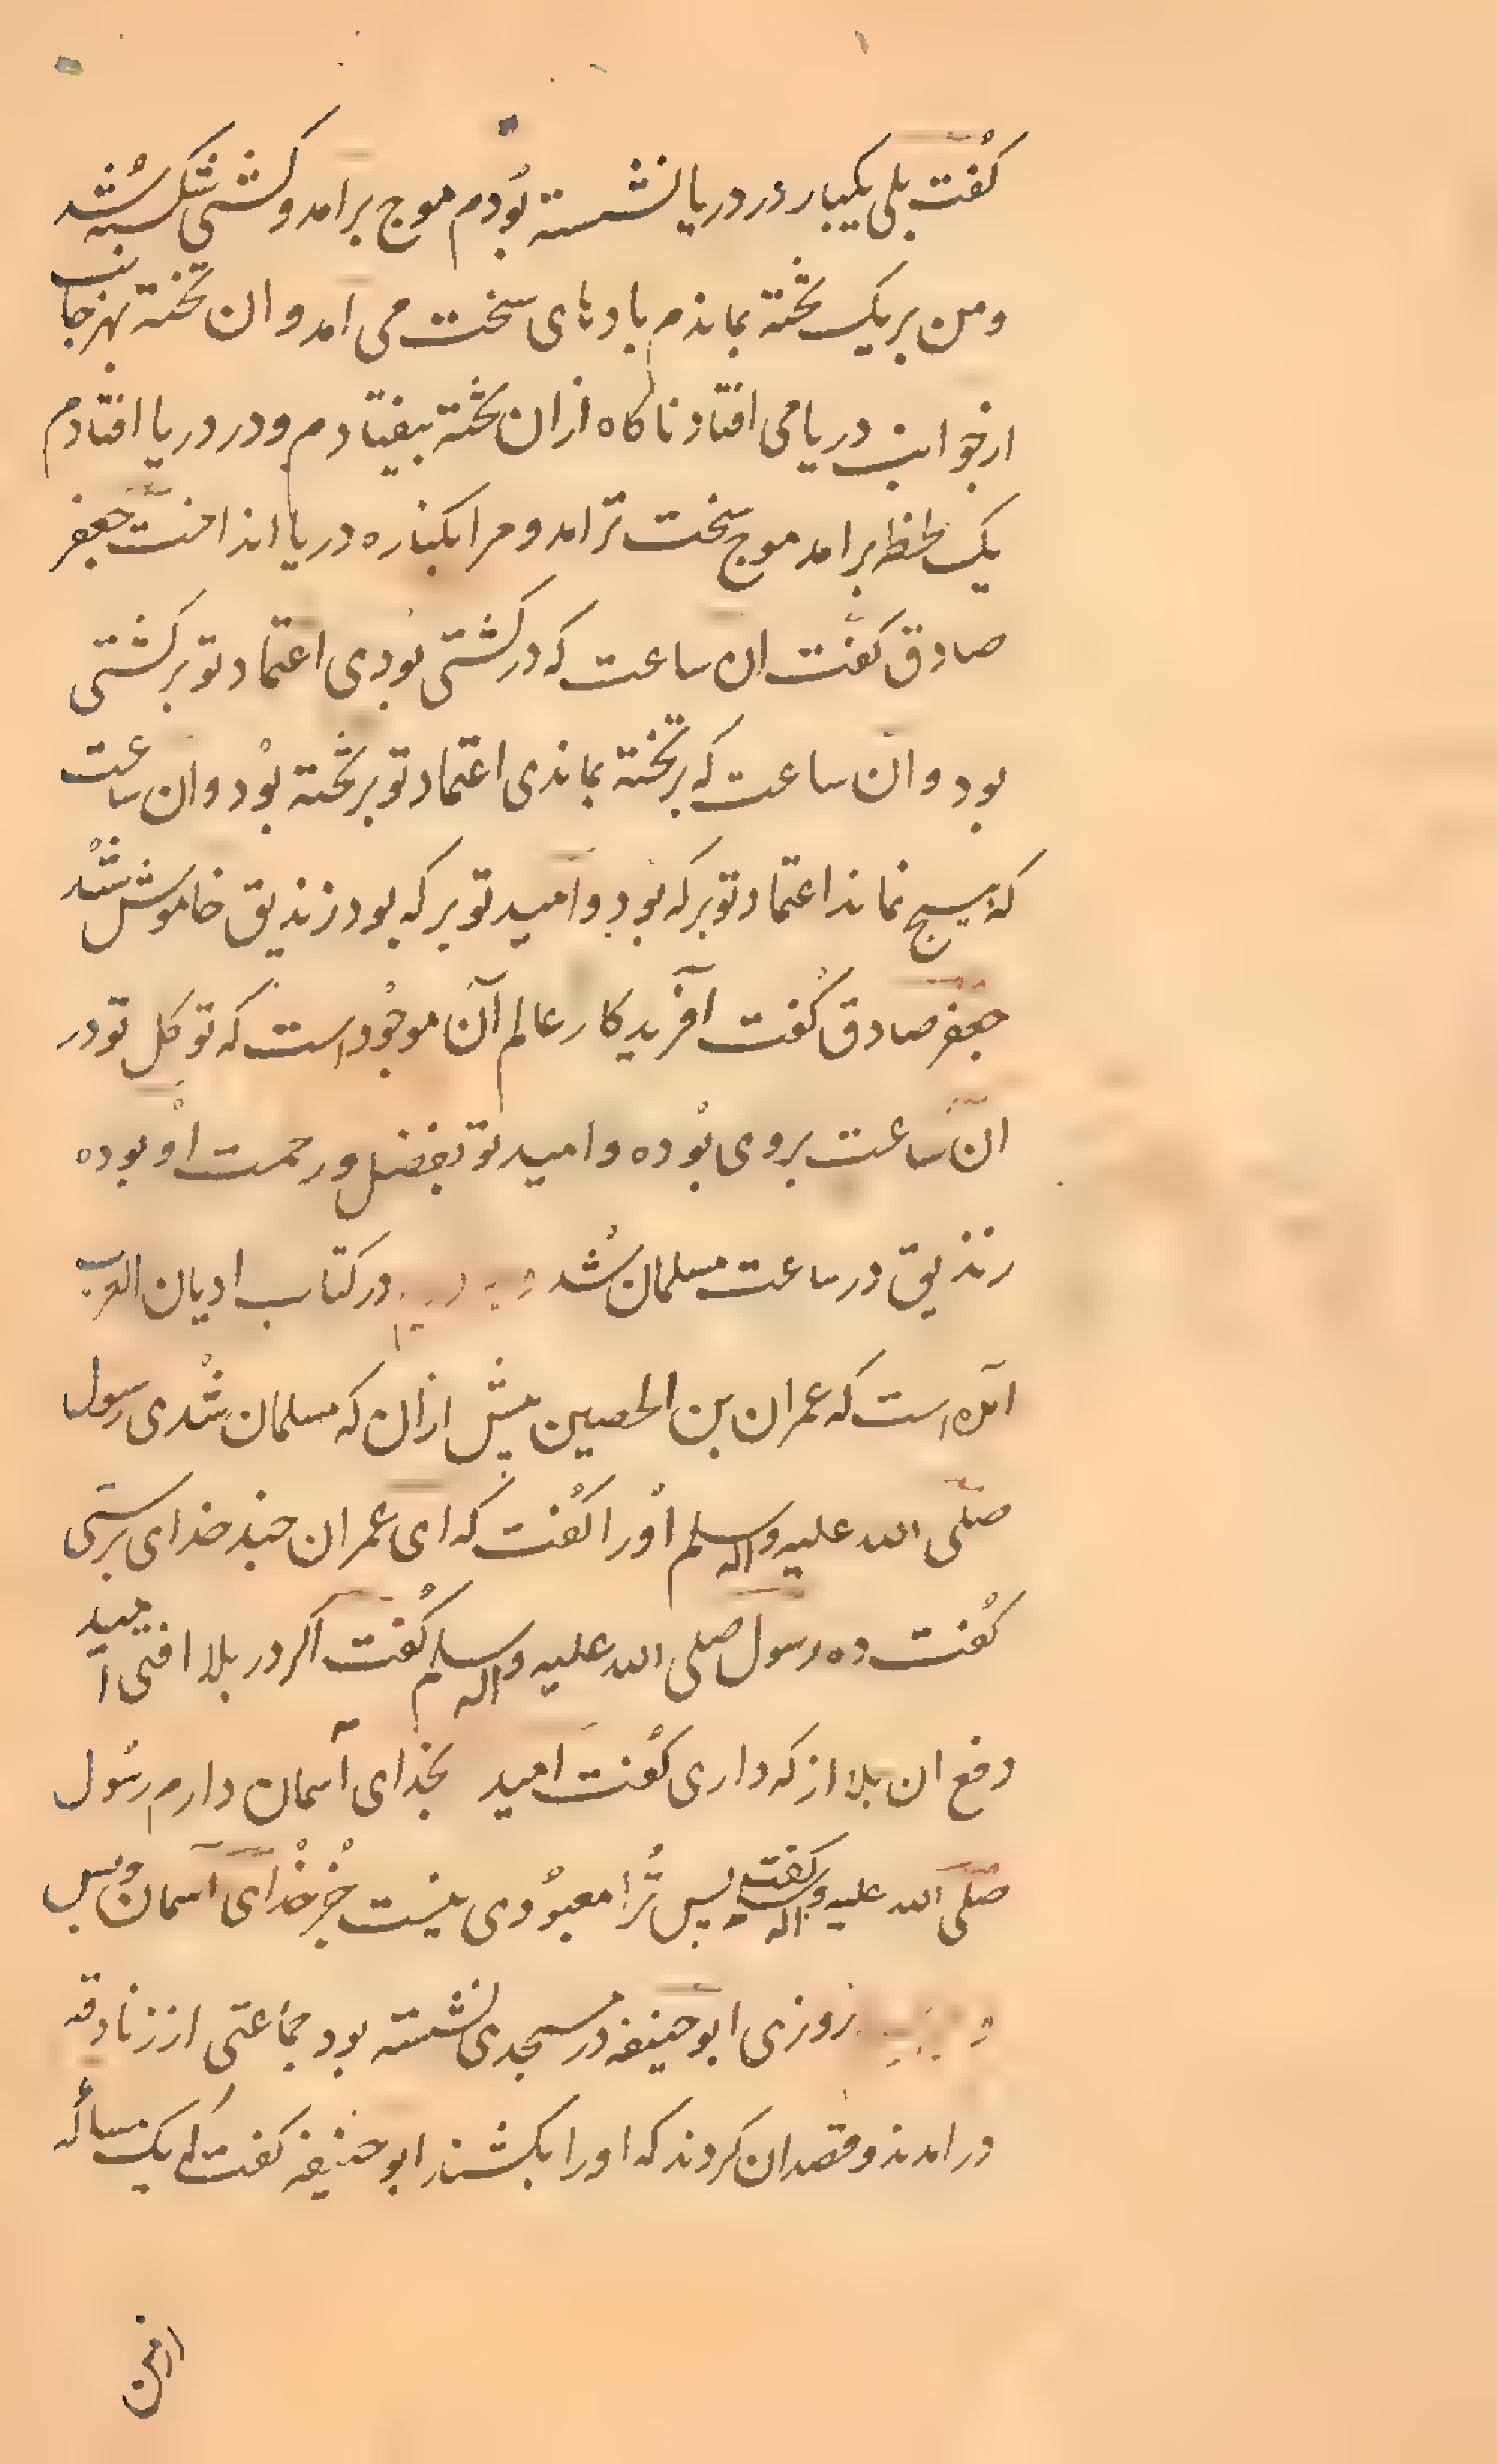 کفت بلی یکبار در دریا نشسته بودم موج برامد و کشتی شکسته شد
و من بر یک تخته بماندم بادهای سخت می امد و ان تخته بهر جانب
از جوانب دریا می افتاد ناکاه ازان تخته بیفتادم و در دریا افتادم
یک لحظه برامد موج سخت تر امد و مرا بکناره دریا انداخت جعفر
صادق کفت ان ساعت که در کشتی بودی اعتماد تو بر کشتی
بود و ان ساعت که بر تخته بماندی اعتماد تو بر تخته بود و ان ساعت
که هیچ نماند اعتماد تو بر که بود و امید تو بر که بود زندیق خاموش شد
جعفر صادق کفت آفریدکار عالم آن موجود است که توکل تو در
ان ساعت بر وی بوده و امید تو بفضل و رحمت او بوده
زندیق در ساعت مسلمان شد در کتاب ادیان العرب
آمده است که عمران بن الحصین پیش ازان که مسلمان شدی رسول
صلی الله علیه واله وسلم اورا کفت که ای عمران چند خدای پرستی
کفت ده رسول صلی الله علیه واله وسلم کفت اکر در بلا افتی امید
دفع ان بلا از که داری کفت امید بخدای آسمان دارم رسول
صلی الله علیه واله وسلم کفت پس ترا معبودی نیست جز خدای آسمان و بس
روزی ابو حنیفه در مسجدی نشسته بود جماعتی از زنادقه
درامدند و قصد ان کردند که اورا بکشند ابو حنیفه کفت که یک مساله
ازمن